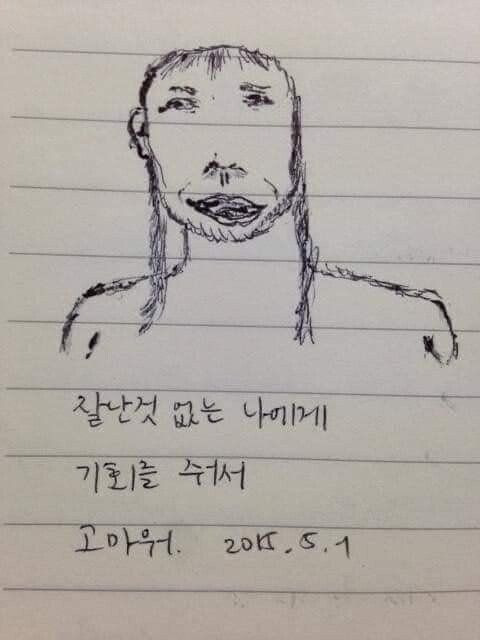 잘난것 없는 나에게
기회를 줘서
고마워. 2015.5.1